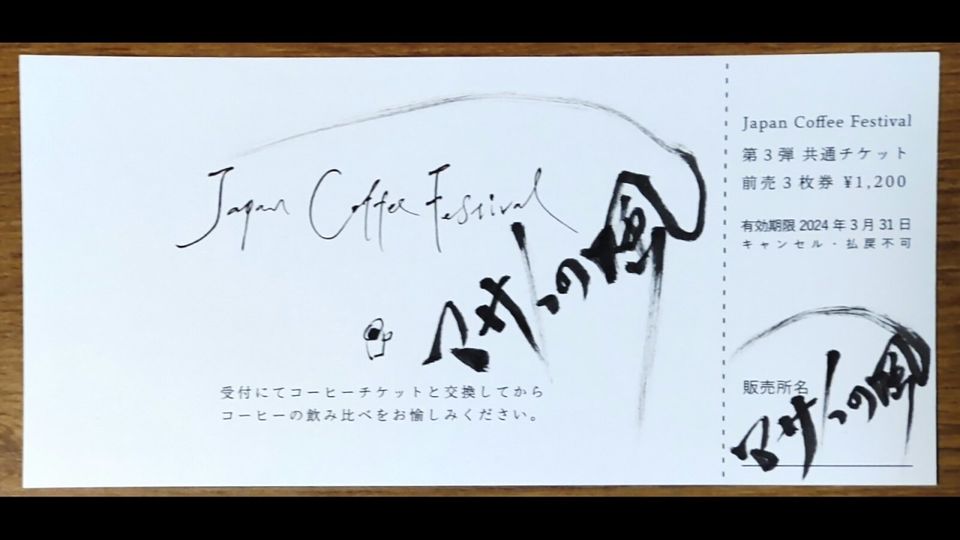 Japan Coffee Festival
の風
受付にてコーヒーチケットと交換してから
コーヒーの飲み比べをお愉しみください。
Japan Coffee Festival
第3弾 共通チケット
前売3枚券 ¥1,200
有効期限 2024年3月31日
キャンセル・払戻不可
販売所名
の風